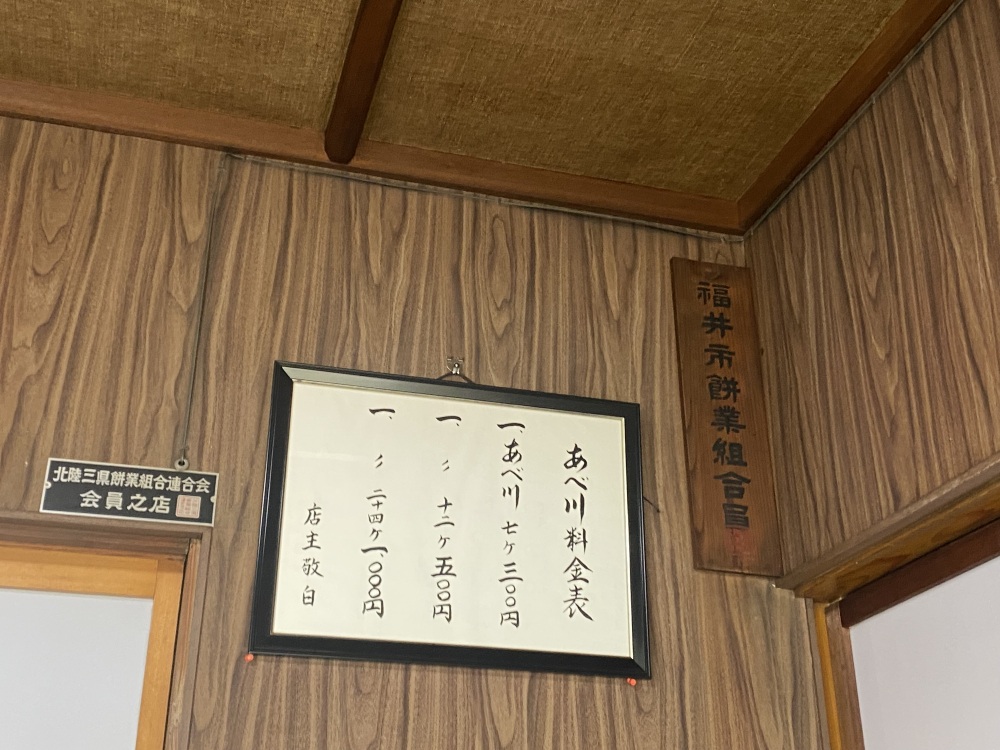 福井市餅業組合員
あべ川料金表
一、あべ川 七ヶ 三〇〇円
一、〃 十二ヶ 五〇〇円
一、〃 二十四ヶ 一、〇〇〇円
店主敬白
北陸三県餅業組合連合会
会員之店